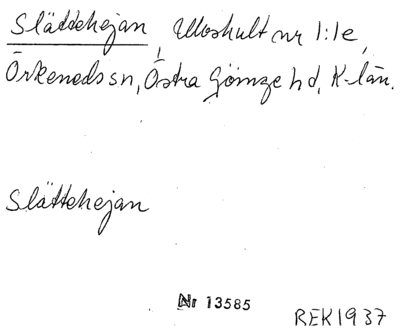 Slättehejan, Uloshult nr 1:1e,
Örkeneds sn, Östra Göinge hd, K-län.
Slättehejan
Nr 13585
REK 1937